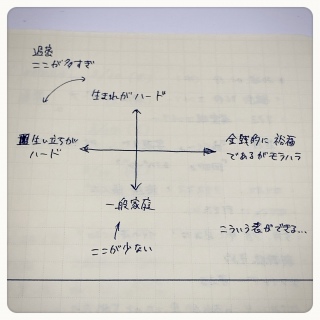 過密
ここが多すぎ
生まれがハード
生い立ちが
ハード
金銭的に裕福
であるがモラハラ
一般家庭
ここが少ない
こういう表ができる…